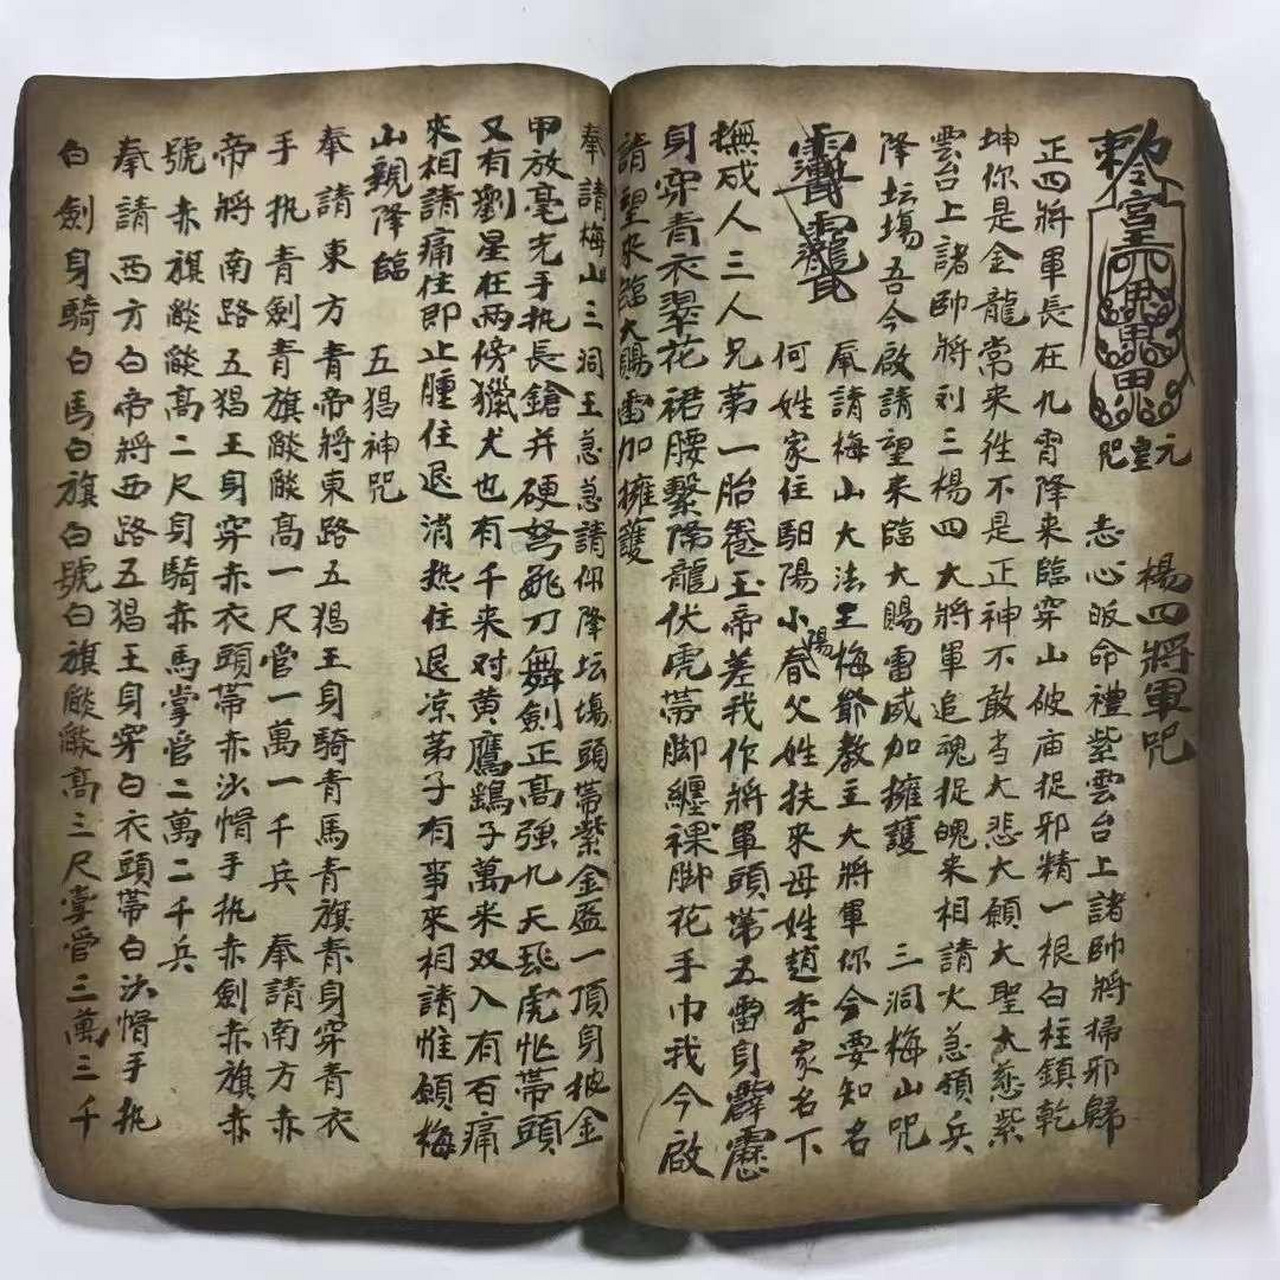 楊四將軍咒
勅令
元皇咒
志心皈命禮紫雲台上諸帥將掃邪歸
正四將軍長在九霄降来臨穿山破庙捉邪精一根白柱鎮乾
坤你是金龍常来徃不是正神不敢当大悲大願大聖大慈紫
雲台上諸帥將列三楊四大將軍追魂捉魄来相請火急領兵
降坛塲吾今啟請望来臨大賜雷威加擁護 三洞梅山咒
奉請梅山大法王梅爺教主大將軍你今要知名
何姓家住馹陽小陽春父姓扶來母姓趙李家名下
撫成人三人兄弟一胎養玉帝差我作將軍頭帶五雷身霹靂
身穿青衣翠花裙腰繫降龍伏虎帶脚纏裸脚花手巾我今啟
請望来臨大賜雷加擁護
奉請梅山三洞王急急請你降坛塲頭帶紫金盔一頂身披金
甲放毫光手执長鎗并硬弩飛刀舞劍正高強九天飛虎帶頭
又有劉星在兩傍獵犬也有千来对黄鷹鷂子萬来双入有百痛
來相請痛住即止腫住退消热住退凉苐子有事來相請惟願梅
山親降臨 五猖神咒
奉請東方青帝將東路五猖王身騎青馬青旗青身穿青衣
手执青劍青旗燄燄高一尺管一萬一千兵 奉請南方赤
帝將南路五猖王身穿赤衣頭帶赤決幘手执赤劍赤旗赤
號赤旗燄燄高二尺身騎赤馬掌管二萬二千兵
奉請西方白帝將西路五猖王身穿白衣頭帶白決幘手执
白劍身騎白馬白旗白號白旗燄燄高三尺掌管三萬三千